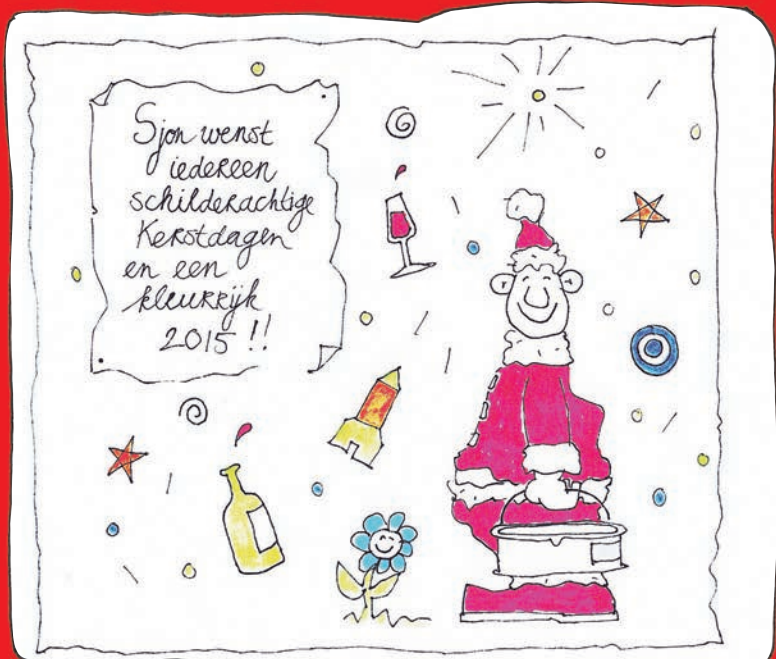 Sjon wenst
iedereen
schilderachtige
Kerstdagen
en een
kleurrijk
2015 !!